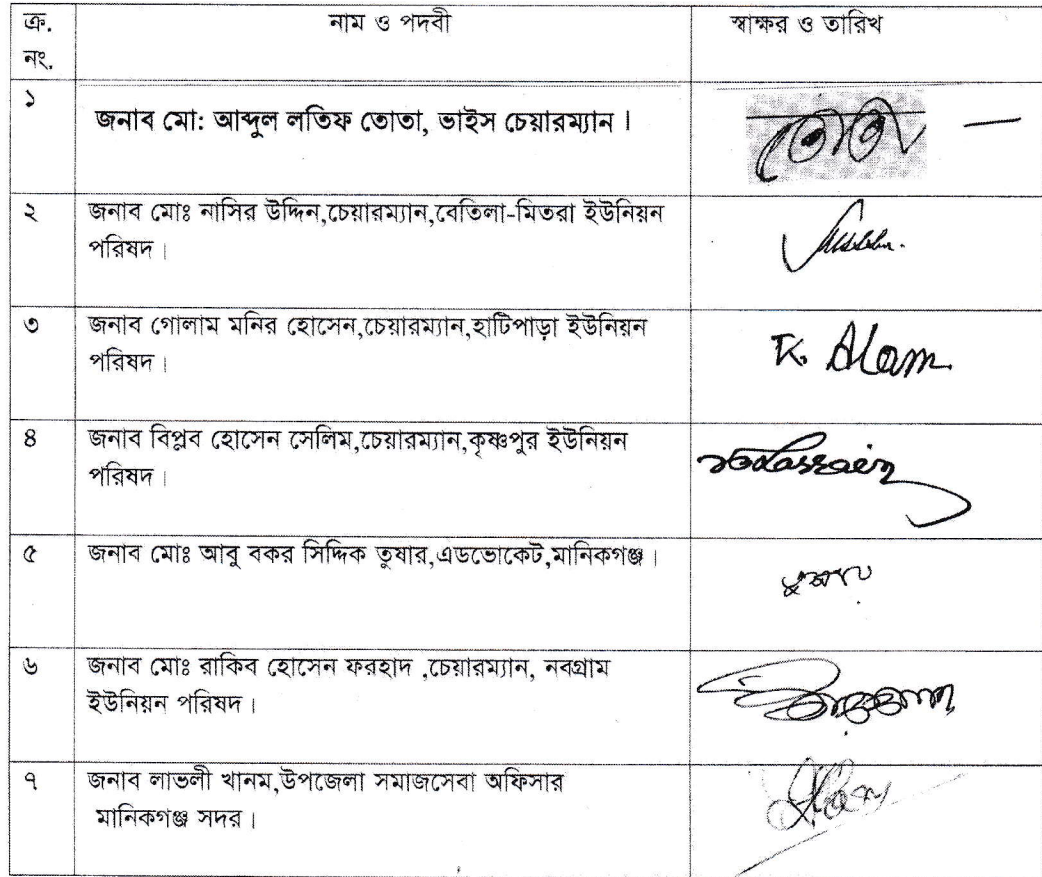 ক্র. নাম ও পদবী স্বাক্ষর ও তারিখ
নং.
১ জনাব মো: আব্দুল লতিফ তোতা, ভাইস চেয়ারম্যান । তোতা
২ জনাব মোঃ নাসির উদ্দিন,চেয়ারম্যান,বেতিলা-মিতরা ইউনিয়ন
পরিষদ ।
৩ জনাব গোলাম মনির হোসেন,চেয়ারম্যান,হাটিপাড়া ইউনিয়ন
পরিষদ । K. Alam
৪ জনাব বিপ্লব হোসেন সেলিম,চেয়ারম্যান,কৃষ্ণপুর ইউনিয়ন
পরিষদ ।
৫ জনাব মোঃ আবু বকর সিদ্দিক তুষার,এডভোকেট,মানিকগঞ্জ । তুষার
৬ জনাব মোঃ রাকিব হোসেন ফরহাদ ,চেয়ারম্যান, নবগ্রাম
ইউনিয়ন পরিষদ ।
৭ জনাব লাভলী খানম,উপজেলা সমাজসেবা অফিসার
মানিকগঞ্জ সদর ।